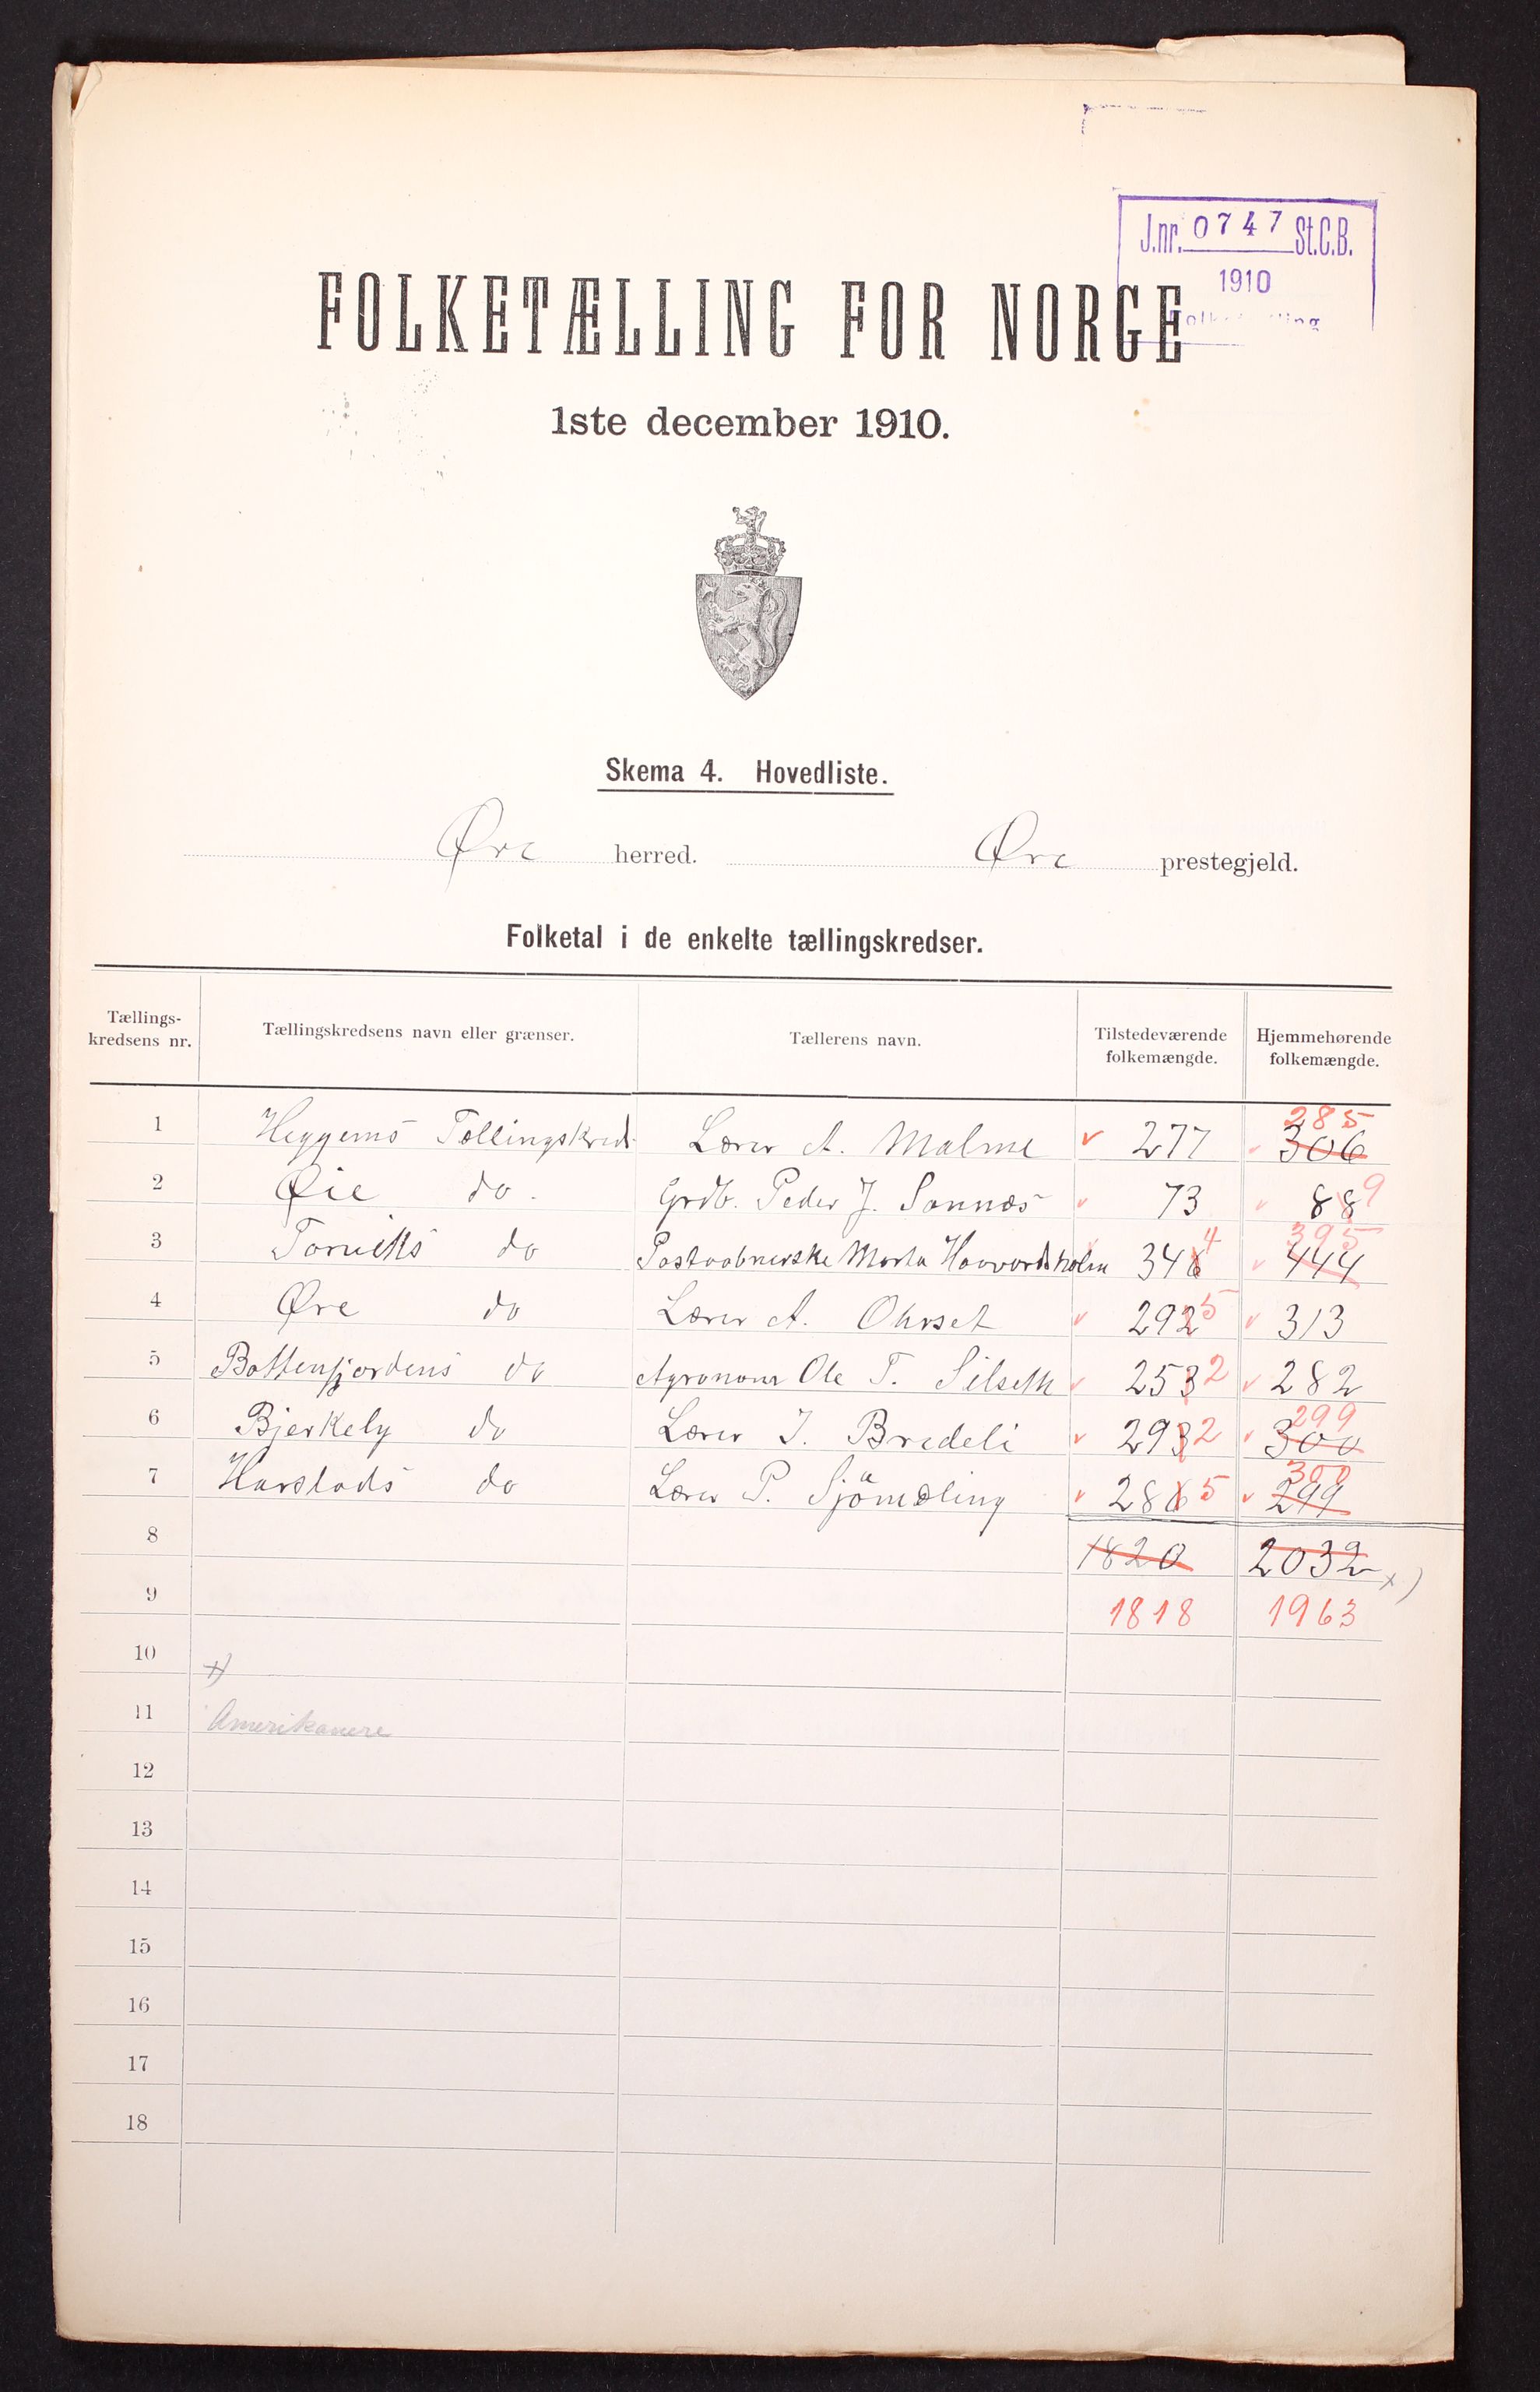 J.nr. 0747 St.C.B.
1910
FOLKETÆLLING FOR NORGE
1ste december 1910.
Skema 4. Hovedliste.
Øre herred. Øre prestegjeld.
Folketal i de enkelte tællingskredser.
Tællings-kredsens nr. Tællingskredsens navn eller grænser. Tællerens navn. Tilstedeværende folkemængde. Hjemmehørende folkemængde.
285
1 Heggems Tællingskreds Lærer A. Malme 277 306
2 Øie do. Grdb. Peder J. Sannæs 73 88 9
4 395
3 Torviks do Postaabnerske Marta Haavardsholm 346 444
4 Øre do Lærer A. Ohrset 292 5 313
5 Battenfjordens do Agronom Ole T. Silseth 253 2 282
299
6 Bjerkely do Lærer J. Bredeli 293 2 300
300
7 Harstads do Lærer P. Sjömæling 286 5 299
8 1820 2032 x)
9 1818 1963
10 x)
11 Amerikanere
12
13
14
15
16
17
18